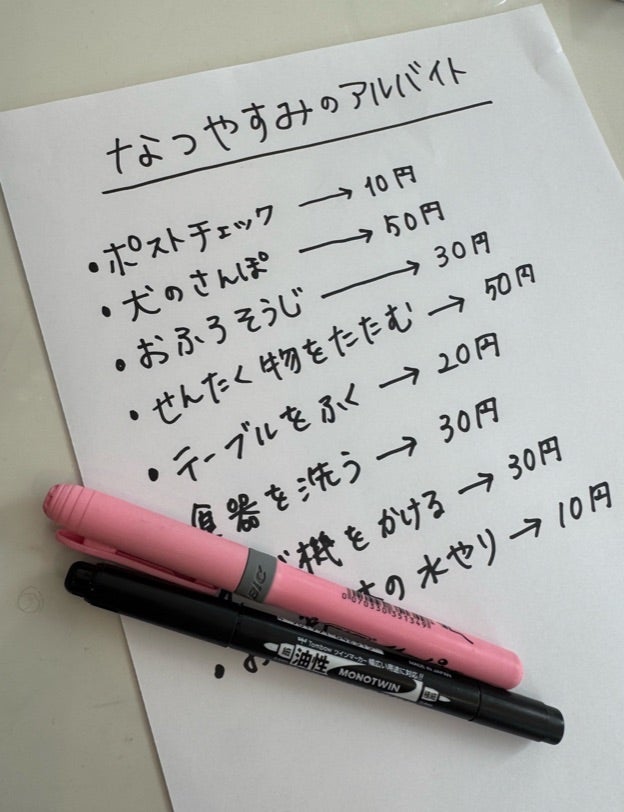 なつやすみのアルバイト
・ポストチェック → 10円
・犬のさんぽ → 50円
・おふろそうじ → 30円
・せんたく物をたたむ → 50円
・テーブルをふく → 20円
器を洗う → 30円
機をかける → 30円
の水やり → 10円
BIC
0 70330 35134
MADE IN JAPAN
Tombow ツインマーカー 幅広い用途に対応!!
油性
MONOTWIN